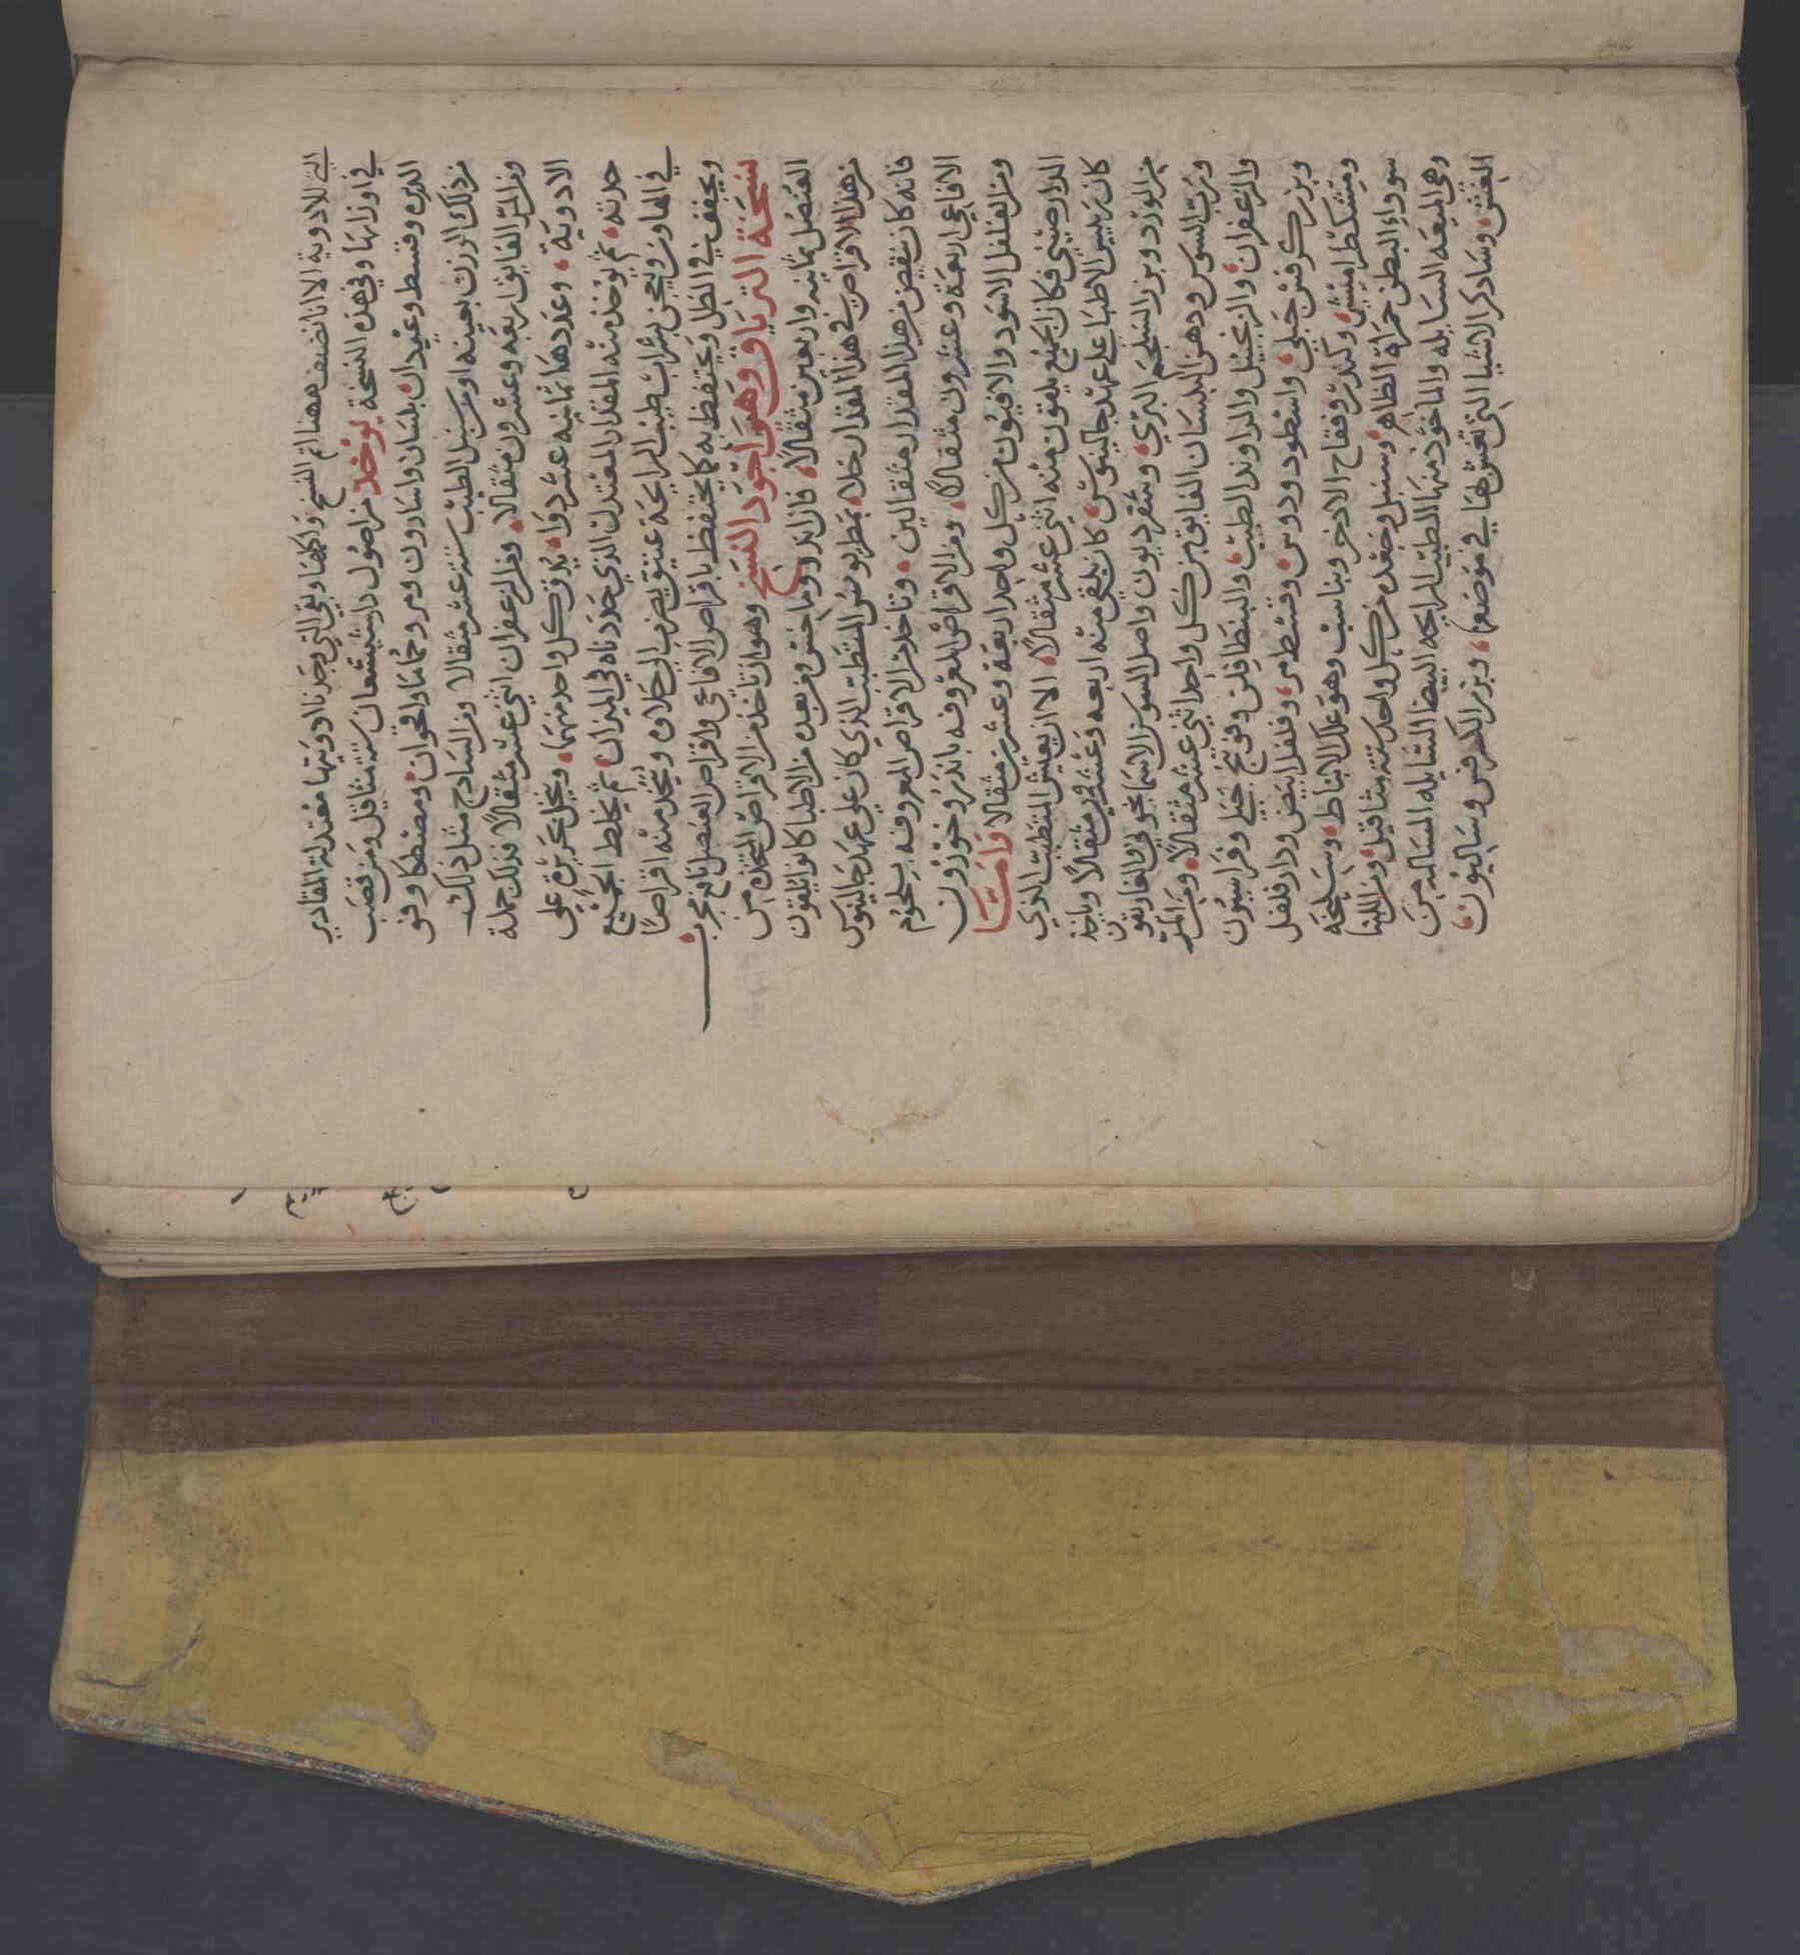 التي للادوية الا انا نصف ههنا اتم النسخ واكملها وهي التي وجدنا ادويتها معتدلة المقادير
في اوزانها وفي هذه النسخة يوخذ من اصول دار شيشعان ستة مثاقيل ومن قصب
الذريره وقسط وعيدان بلسان واسارون ومرو وحماما واقحوان ومصطكا وفو
من ذلك الوزن بعينه او من سنبل الطيب ستة عشر مثقالا ومن السادج مثل ذلك
ومن المر الفايق اربعه وعشرون مثقالا ومن الزعفران اثني عشر مثقالا فذلك جملة
الادوية وعددها ثمانيه عشر دوا يدق كل واحد منهما وينخل بحريرة علي
حدته ثم يوخذ منه المقدار المقدر الذي حددناه في الميزان ثم يخلط الجميع
في الهاون ويعجن بشراب طيب الرايحة عتيق يضرب الي حلاوه ويتخذ منه اقراصا
ويجفف في الظل ويحتفظ به كما يحتفظ باقراص الافاعي واقراص العنصل نافع مجرب
نسخة الترياق وهو اجود النسخ وهو ان تاخذ من الاقراص المتخذه من
العنصل ثمانيه واربعين مثقالا فان اندروماخس ومن بعده من الاطبا كانوا يلقون
من هذا الاقراص في هذا المقدار خلا بمطريوس المتطبب الذي كان علي عهد جالينوس
فانه كان ينقص من هذا المقدار مثقالين وتاخذ من الاقراص المعروفه بلحوم
الافاعي اربعة وعشرون مثقالا ومن الاقراص المعروفه باندروخورون
ومن الفلفل الاسود والافيون من كل واحد اربعة وعشرين مثقالا فاما
الدار صيني فكان الجميع يلقون منه اثني عشر مثقالا الا ان يعيش المتطبب الذي
كان رييس الاطبا علي عهد جالينوس كان يلقي منه اربعه وعشرين مثقالا وياخذ
من الورد وبزر السلجم البري وشقرديون واصل السوسن الاسمانجوني والغاريقون
ورب السوس ودهن البلسان الفايق من كل واحد اثني عشر مثقالا ومن المر
والزعفران والزنجبيل والراوند الطيب والبنطافلن وفوتنج جبلي وفراسيون
وبزر كرفس جبلي واسطوخودوس وقسط مر وفلفل ابيض ودار فلفل
ومشكطرامشير وكندر وفقاح الاذخر وبناست وهو علك الانباط وسليخه
سوداء البطن حمراة الظاهر وسنبل وجعده من كل واحد ستة مثاقيل ومن اللبنا
وهي الميعه السايله والماخوذ منها الطيب الرايحه البيضا السايله السالمه من
الغش وساذكر الاشيا التي تغش هنا في موضعها وبزر الكرفس وساليون